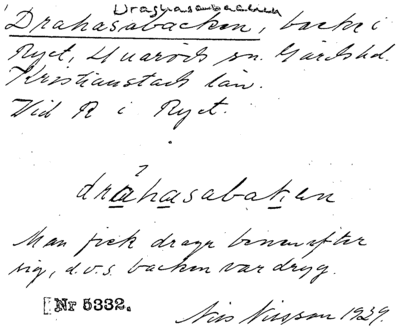 Draghasabacken
Drahasabacken, backe i
Ryet, Huaröds sn. Gärds hd.
Kristianstads län.
Vid R i Ryet.
?
drähasabaken
Man fick draga benen efter
sig, d.v.s. backen var dryg.
Nr 5332.
Nils Nilsson 1929.